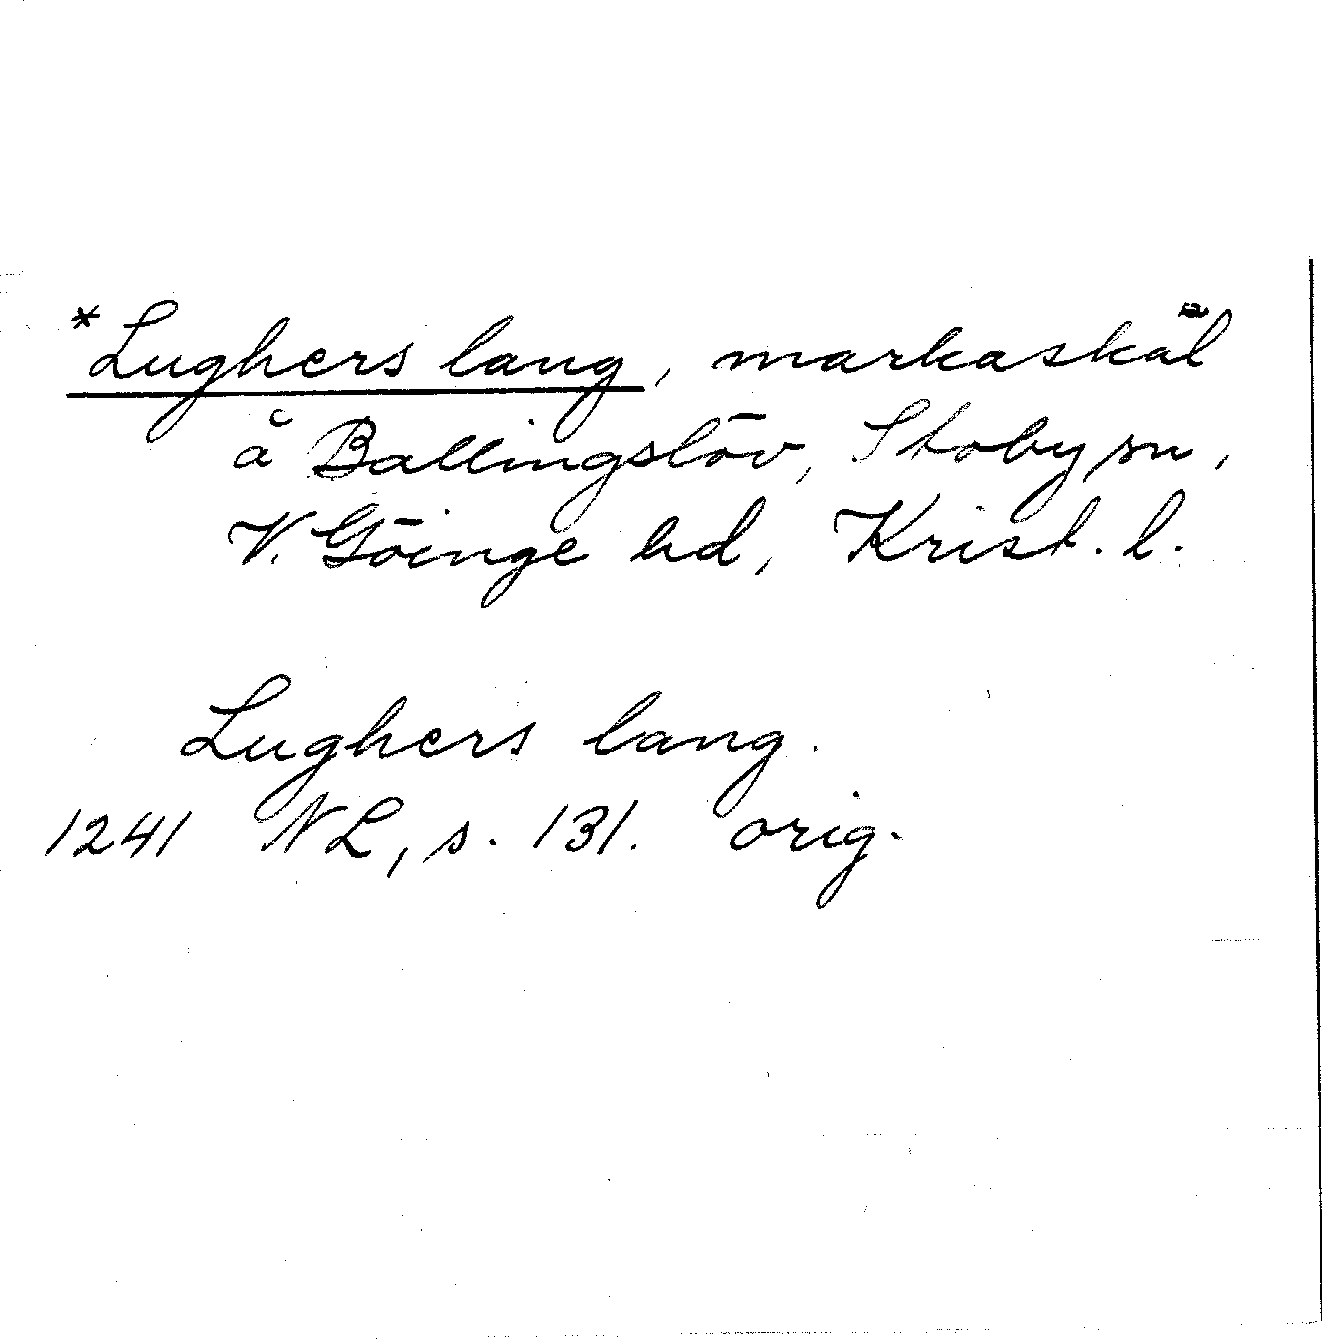 *Lughers lang, markaskäl
å Ballingslöv, Stoby sn,
V. Göinge hd, Krist. l.
Lughers lang.
1241 NL, s. 131. orig.